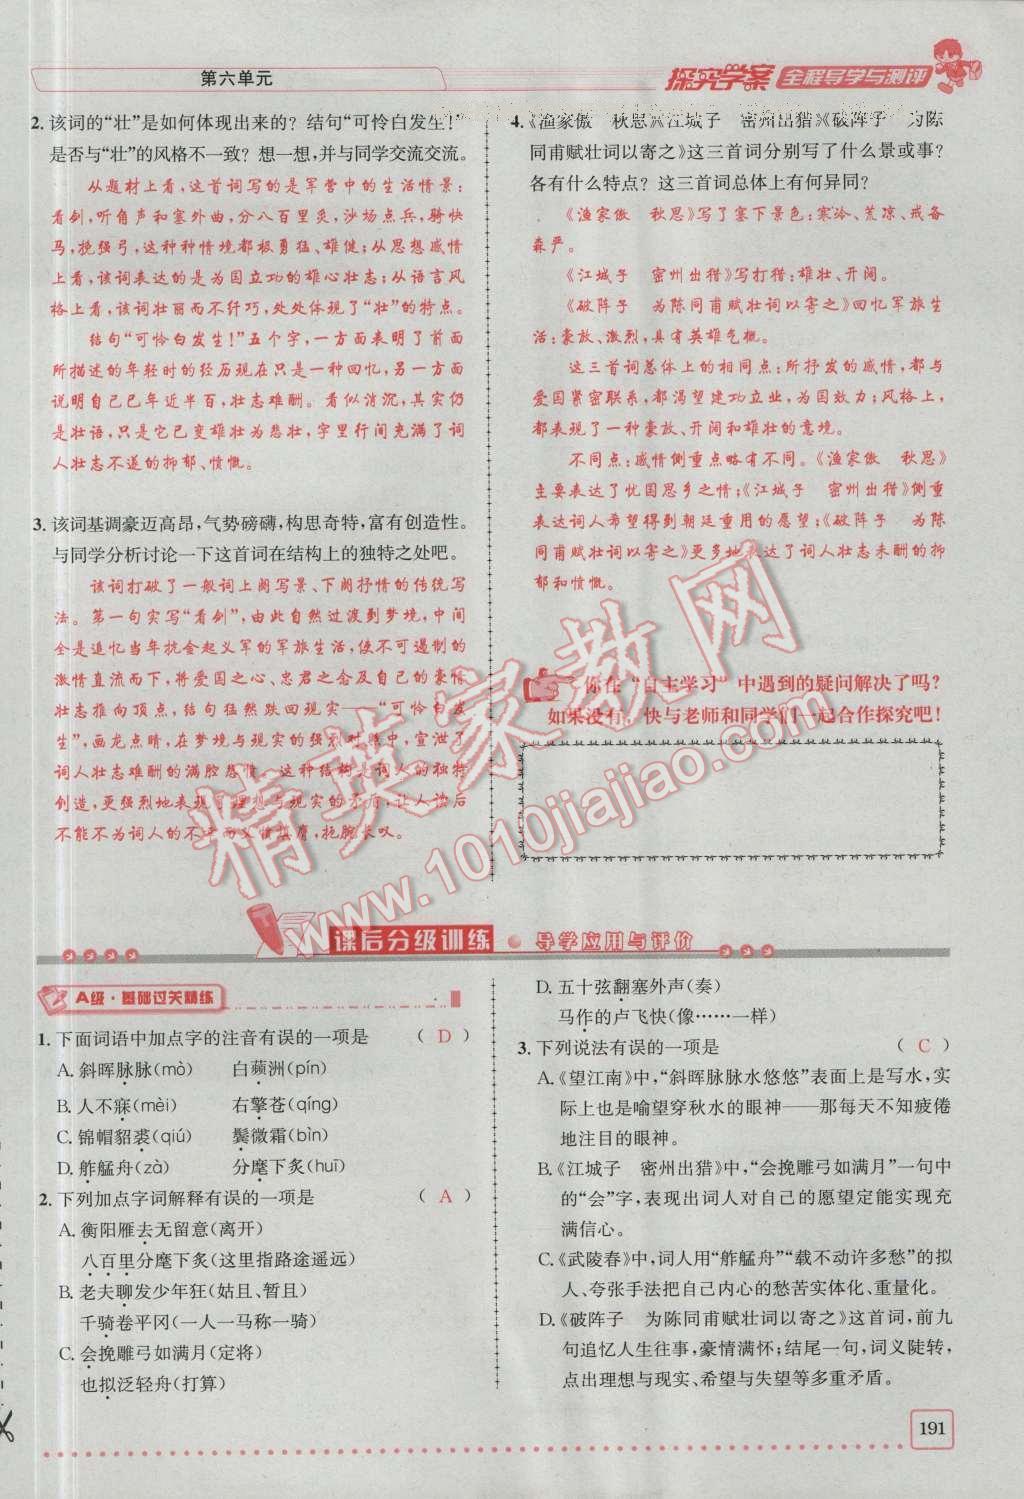 第六单元
探究学案 全程导学与测评
2. 该词的“壮”是如何体现出来的？结句“可怜白发生！”
是否与“壮”的风格不一致？想一想，并与同学交流交流。
从题材上看，这首词写的是军营中的生活情景：
看剑，听角声和塞外曲，分八百里炙，沙场点兵，骑快
马，挽强弓，这种种情境都极勇猛、雄健；从思想感情
上看，该词表达的是为国立功的雄心壮志；从语言风
格上看，该词壮丽而不纤巧，处处体现了“壮”的特点。
结句“可怜白发生！”五个字，一方面表明了前面
所描述的年轻时的经历现在只是一种回忆，另一方面
说明自己已年近半百，壮志难酬。看似消沉，其实仍
是壮语，只是它已变雄壮为悲壮，字里行间充满了词
人壮志不遂的抑郁、愤慨。
3. 该词基调豪迈高昂，气势磅礴，构思奇特，富有创造性。
与同学分析讨论一下这首词在结构上的独特之处吧。
该词打破了一般词上阕写景、下阕抒情的传统写
法。第一句实写“看剑”，由此自然过渡到梦境，中间
全是追忆当年抗金起义军的军旅生活，使不可遏制的
激情直流而下，将爱国之心、忠君之念及自己的豪情
壮志推向顶点，结句猛然跌回现实——“可怜白发
生”，画龙点睛，在梦境与现实的强烈对比中，宣泄了
词人壮志难酬的满腔悲愤。这种结构是词人的独特
创造，更强烈地表现了理想与现实的矛盾，让人读后
不能不为词人的不幸而义愤填膺，扼腕长叹。
4. 《渔家傲　秋思》《江城子　密州出猎》《破阵子　为陈
同甫赋壮词以寄之》这三首词分别写了什么景或事？
各有什么特点？这三首词总体上有何异同？
《渔家傲　秋思》写了塞下景色：寒冷、荒凉、戒备
森严。
《江城子　密州出猎》写打猎：雄壮、开阔。
《破阵子　为陈同甫赋壮词以寄之》回忆军旅生
活：豪放、激烈，具有英雄气概。
这三首词总体上的相同点：所抒发的感情，都与
爱国紧密联系，都渴望建功立业，为国效力；风格上，
都表现了一种豪放、开阔和雄壮的意境。
不同点：感情侧重点略有不同。《渔家傲　秋思》
主要表达了忧国思乡之情；《江城子　密州出猎》侧重
表达词人希望得到朝廷重用的愿望；《破阵子　为陈
同甫赋壮词以寄之》更多地表达了壮志未酬的抑
郁和愤慨。
你在“自主学习”中遇到的疑问解决了吗？
如果没有，快与老师和同学们一起合作探究吧！
精英家教网
www.1010jiajiao.com
课后分级训练 导学应用与评价
A级·基础过关精练
1. 下面词语中加点字的注音有误的一项是 （ D ）
A. 斜晖脉脉(mò)　白蘋洲(pín)
B. 人不寐(mèi)　右擎苍(qíng)
C. 锦帽貂裘(qiú)　鬓微霜(bìn)
D. 舴艋舟(zà)　分麾下炙(huī)
2. 下列加点字词解释有误的一项是 （ A ）
A. 衡阳雁去无留意(离开)
八百里分麾下炙(这里指路途遥远)
B. 老夫聊发少年狂(姑且、暂且)
千骑卷平冈(一人一马称一骑)
C. 会挽雕弓如满月(定将)
也拟泛轻舟(打算)
D. 五十弦翻塞外声(奏)
马作的卢飞快(像……一样)
3. 下列说法有误的一项是 （ C ）
A. 《望江南》中，“斜晖脉脉水悠悠”表面上是写水，实
际上也是喻望穿秋水的眼神——那每天不知疲倦
地注目的眼神。
B. 《江城子　密州出猎》中，“会挽雕弓如满月”一句中
的“会”字，表现出词人对自己的愿望定能实现充
满信心。
C. 《武陵春》中，词人用“舴艋舟”“载不动许多愁”的拟
人、夸张手法把自己内心的愁苦实体化、重量化。
D. 《破阵子　为陈同甫赋壮词以寄之》这首词，前九
句追忆人生往事，豪情满怀；结尾一句，词义陡转，
点出理想与现实、希望与失望等多重矛盾。
191